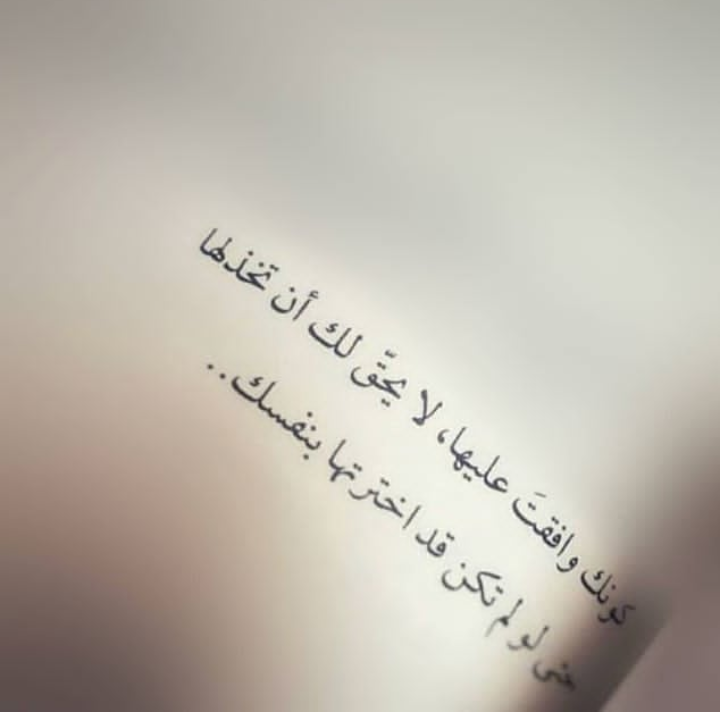 كونك وافقتَ عليها، لا يحقّ لك أن تخذلها
حتى لو لم تكن قد اخترتها بنفسك..